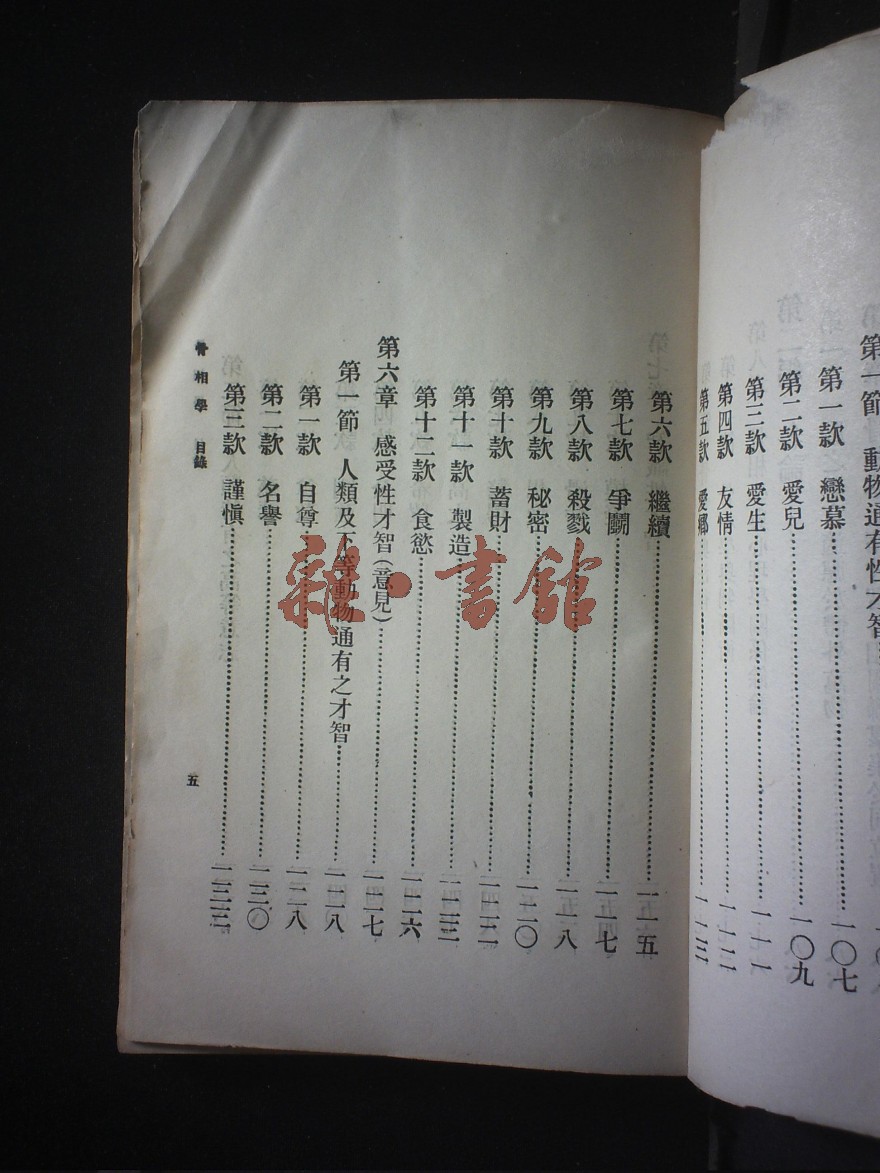 第一節 動物通有性才智
第一款 戀慕……一〇七
第二款 愛兒……一〇九
第三款 愛生……一一一
第四款 友情……一一二
第五款 愛鄉……一一三
第六款 繼續……一一五
第七款 爭鬭……一一七
第八款 殺戮……一一八
第九款 秘密……一二〇
第十款 蓄財……一二二
第十一款 製造……一二三
第十二款 食慾……一二六
第六章 感受性才智(意見)……一二七
第一節 人類及下等動物通有之才智……一二八
第一款 自尊……一二八
第二款 名譽……一三〇
第三款 謹慎……一三三
骨相學 目錄
五
雜·書館